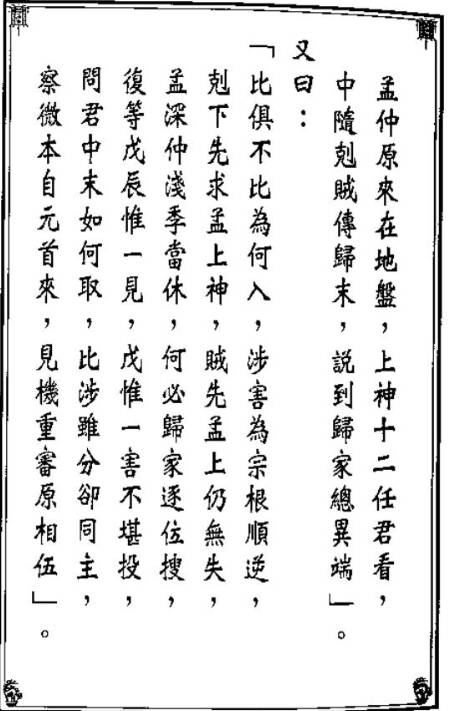 孟仲原來在地盤，上神十二任君看，
中隨剋賊傳歸末，說到歸家總異端」。
又曰：
「比俱不比為何入，涉害為宗根順逆，
剋下先求孟上神，賊先孟上仍無失，
孟深仲淺季當休，何必歸家逐位搜，
復等戊辰惟一見，戊惟一害不堪投，
問君中末如何取，比涉雖分卻同主，
察微本自元首來，見機重審原相伍」。